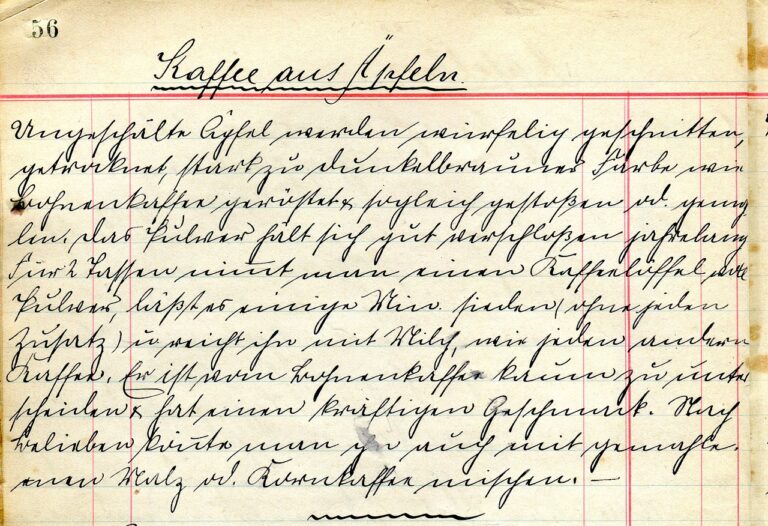 56
Kaffee aus Äpfeln.
Ungeschälte Äpfel werden würfelig geschnitten,
getrocknet, stark zu dunkelbrauner Farbe wie
Bohnenkaffee geröstet & sogleich gestoßen od. gema
len. Das Pulver hält sich gut verschloßen jahrelang
Für 2 Tassen nim̅t man einen Kaffeelöffel voll
Pulver, läßt es einige Min. sieden (ohne jeden
Zusatz) u reicht ihn mit Milch, wie jeden andern
Kaffee. Er ist vom Bohnenkaffee kaum zu unter
scheiden & hat einen kräftigen Geschmack. Nach
Belieben kön̅te man ihn auch mit gemahle-
nen Malz od. Kornkaffee mischen. —